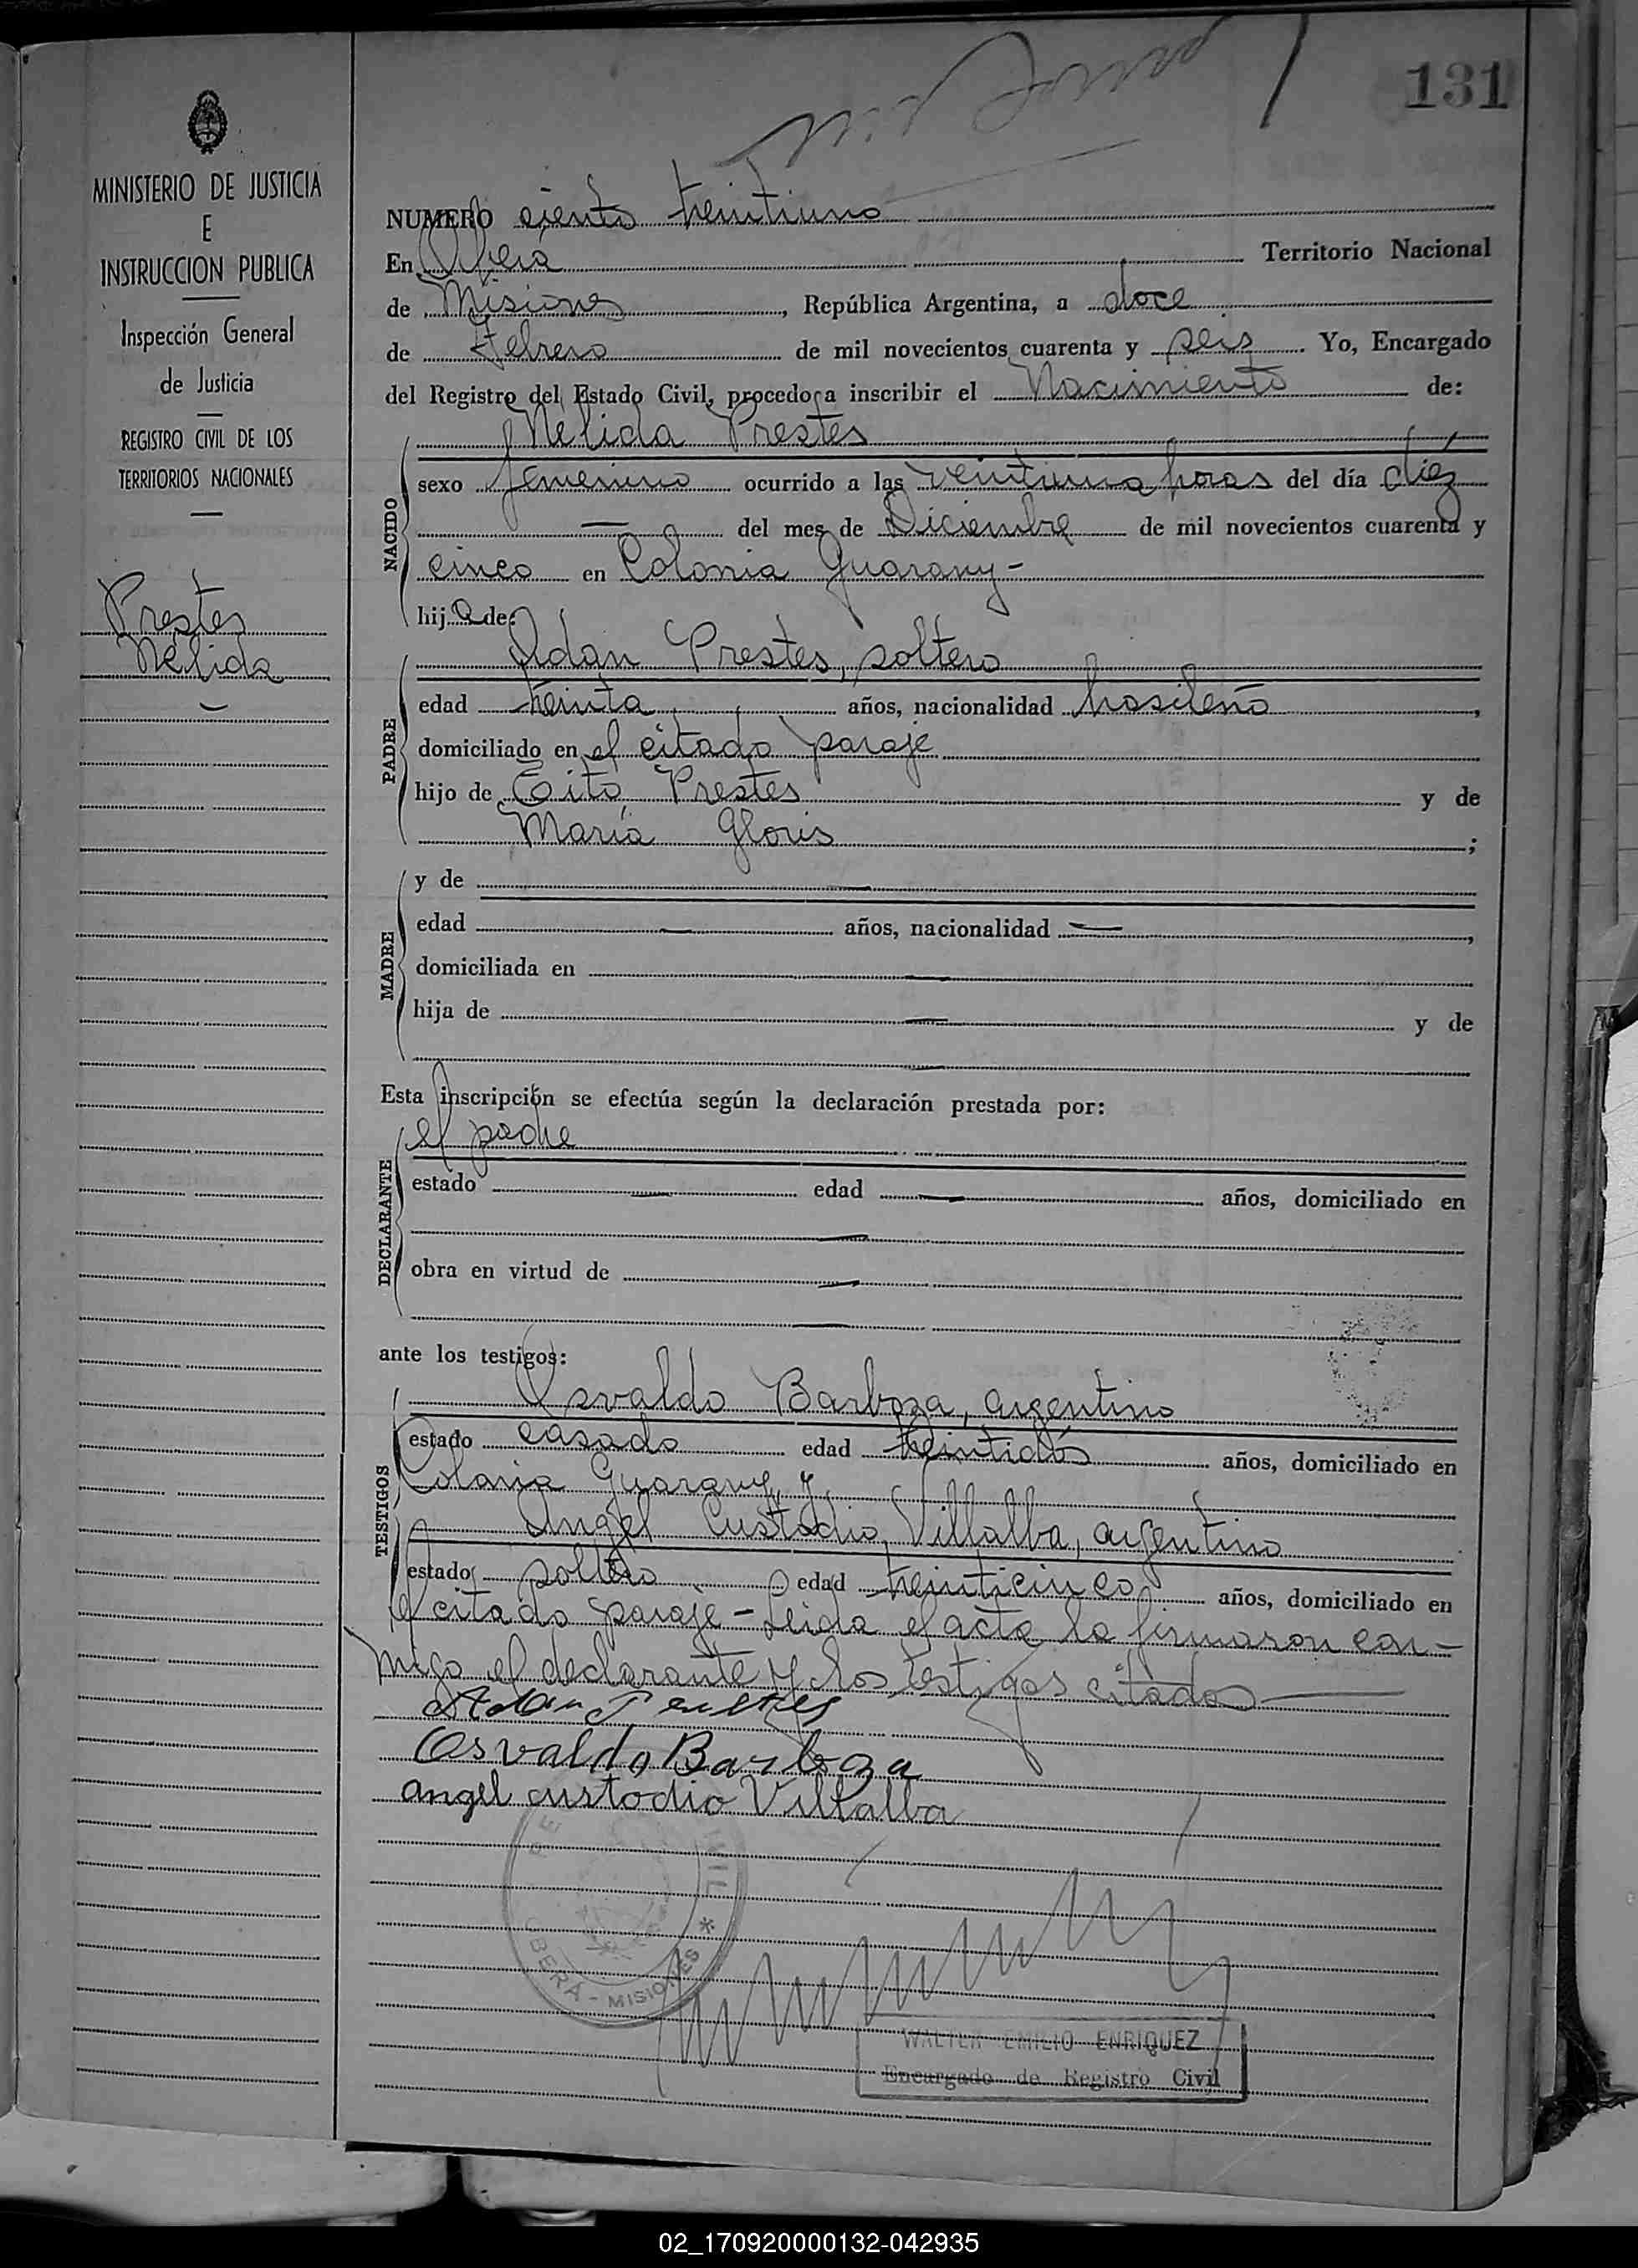 131
MINISTERIO DE JUSTICIA
E
INSTRUCCION PUBLICA
Inspección General
de Justicia
REGISTRO CIVIL DE LOS
TERRITORIOS NACIONALES
Prestes
Nélida
NUMERO ciento treintiuno
En Oberá Territorio Nacional
de Misiones, República Argentina, a doce
de Febrero de mil novecientos cuarenta y seis. Yo, Encargado
del Registro del Estado Civil, procedo a inscribir el Nacimiento de:
NACIDO
Nélida Prestes
sexo femenino ocurrido a las veintiuna horas del día diez
— del mes de Diciembre de mil novecientos cuarenta y
cinco en Colonia Guarany-
hija de:
PADRE
Adan Prestes, soltero
edad treinta años, nacionalidad brasileño,
domiciliado en el citado paraje
hijo de Prestes y de
María Gloris;
MADRE
y de —
edad — años, nacionalidad —,
domiciliada en —
hija de — y de
—
Esta inscripción se efectúa según la declaración prestada por:
DECLARANTE
el padre
estado — edad — años, domiciliado en
—
obra en virtud de —
—
ante los testigos:
TESTIGOS
Osvaldo Barboza, argentino
estado casado edad treintidós años, domiciliado en
Colonia Guarany, y
Angel Custodio Villalba, argentino
estado soltero edad treinticinco años, domiciliado en
el citado paraje - Leida el acta la firmaron con-
migo el declarante y los testigos citados —
Adan Prestes
Osvaldo Barboza
angel custodio Villalba
OBERÁ - MISIONES *
WALTER EMILIO ENRIQUEZ
Encargado de Registro Civil
02_170920000132-042935